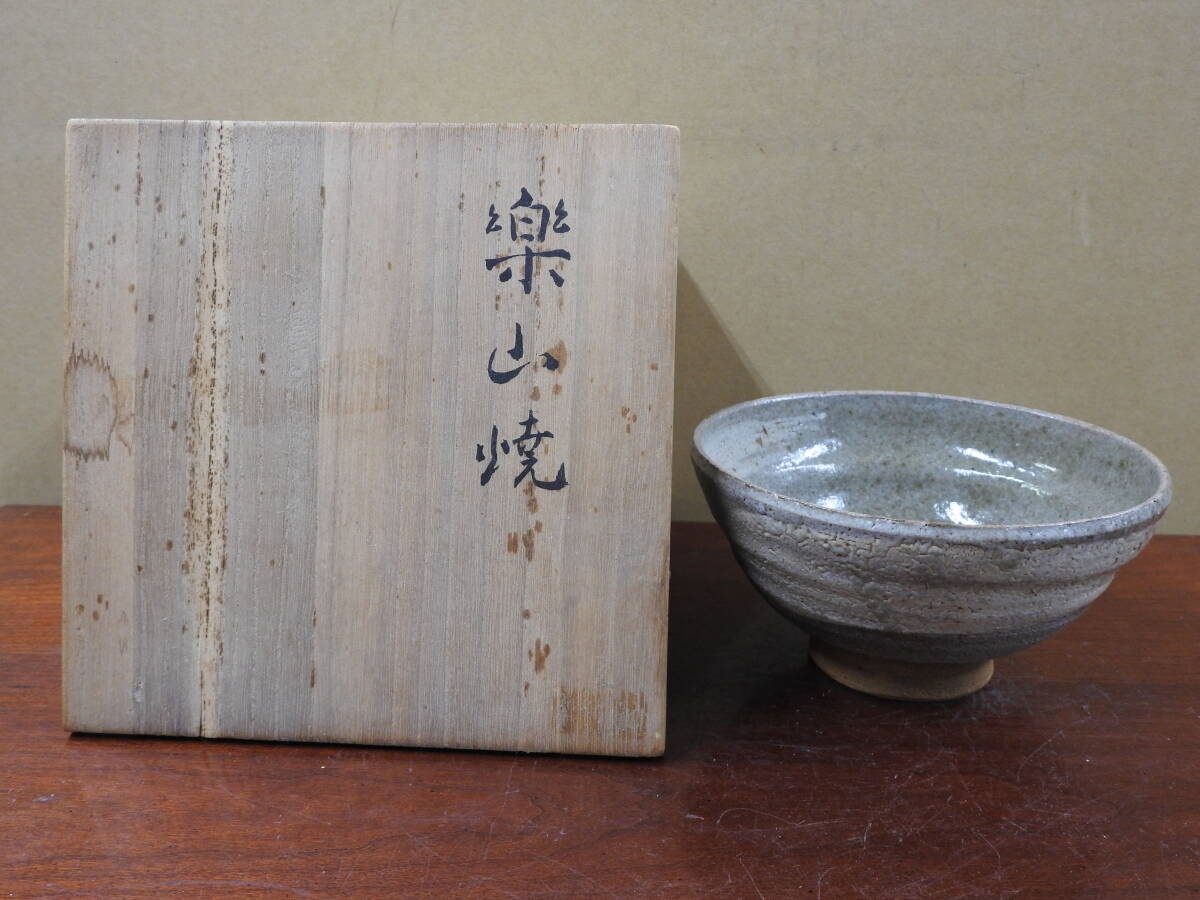 樂山焼